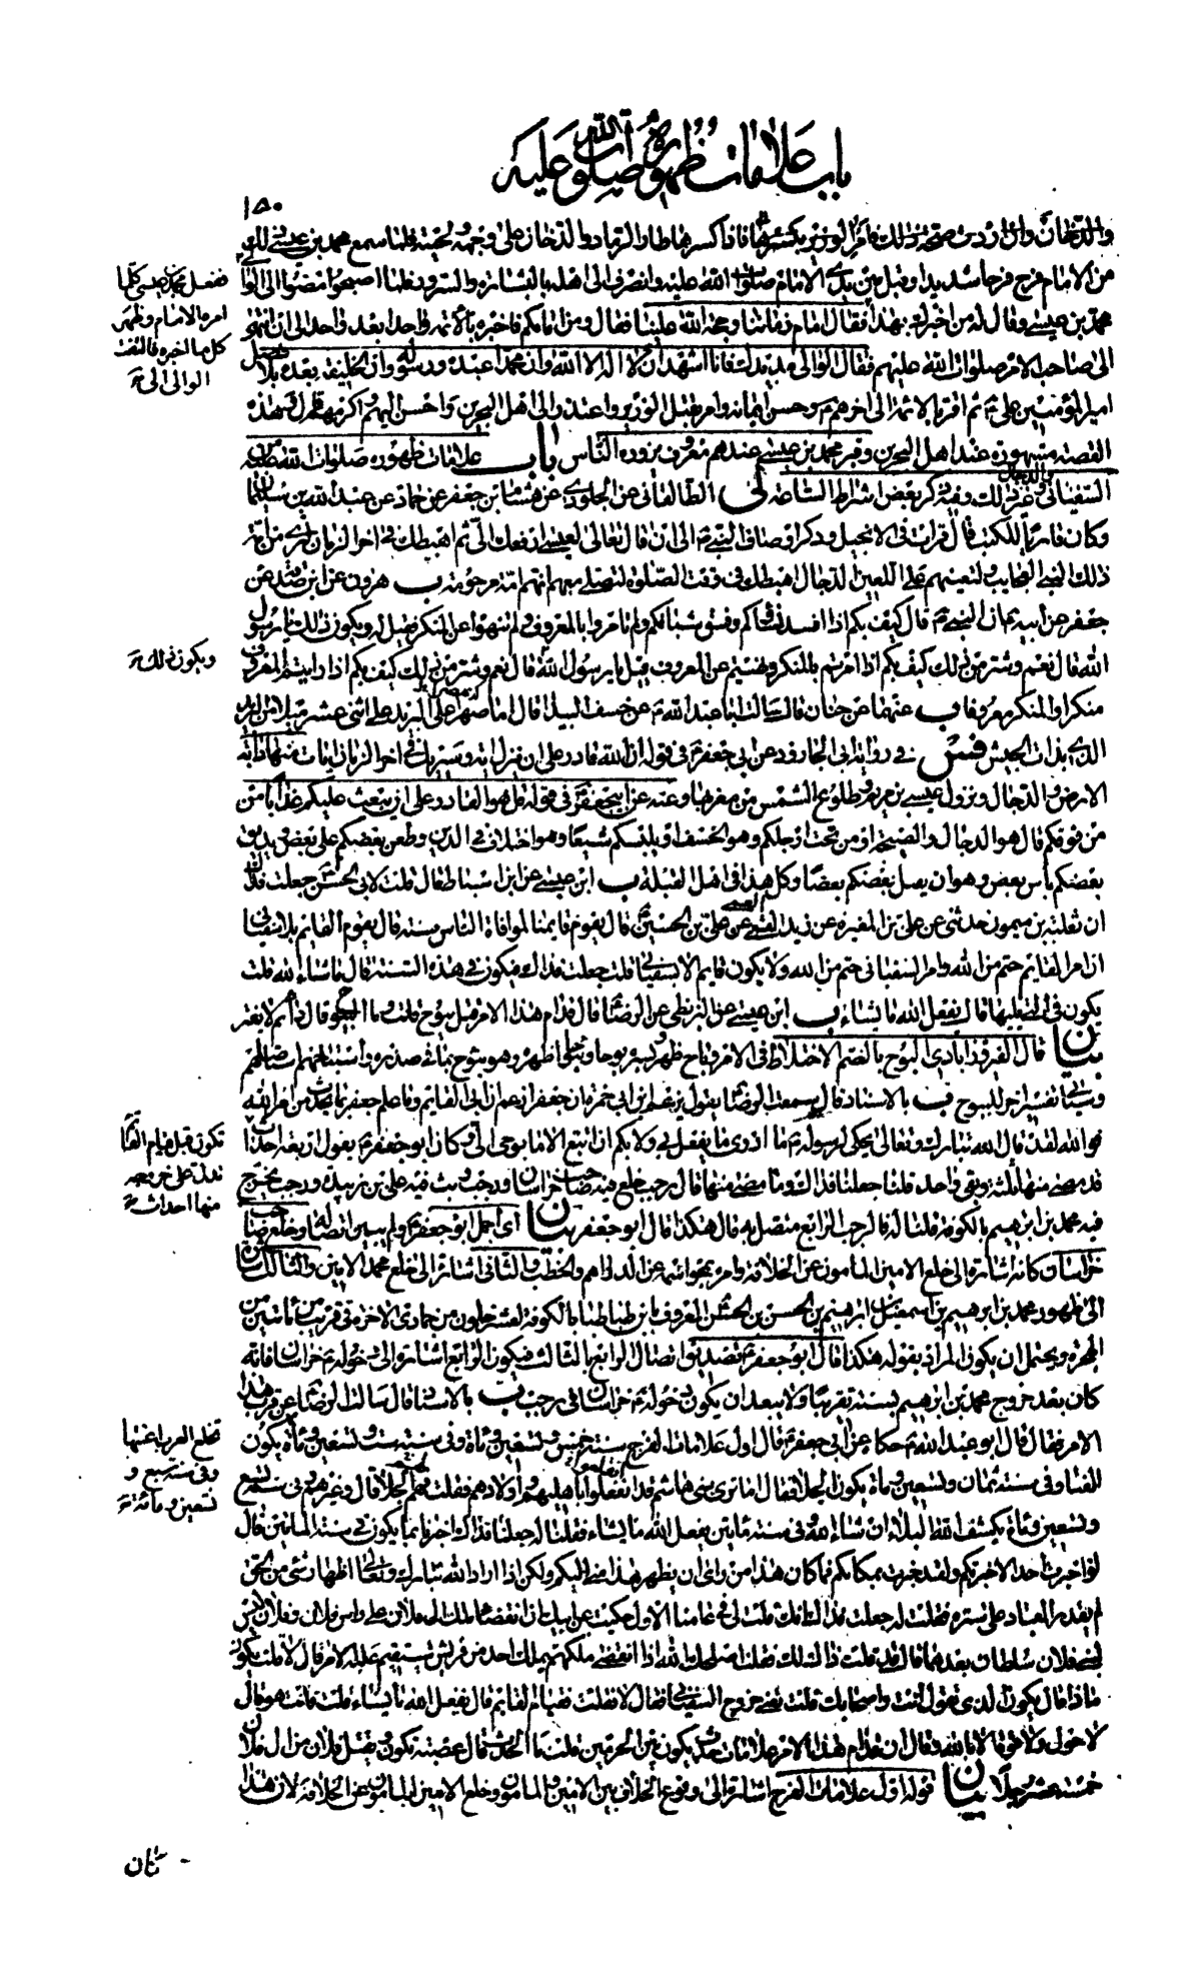 باب علامات ظهوره صلوات الله عليه
١٥٠
والدخان وان اردت صحة ذلك فامر الوزير بكسرها فاذا كسرها طار الرماد والدخان على وجهه ولحيته فلما سمع محمد بن عيسى ذلك
من الامام فرح فرحا شديدا وقبل بين يدى الامام صلوات الله عليه وانصرف الى اهله بالبشارة والسرور فلما اصبحوا مضوا الى الوالى
محمد بن عيسى وقال له من اخبرك بهذا فقال امام زماننا وحجة الله علينا فقال ومن امامكم فاخبره بالائمة واحدا بعد واحد الى ان انتهى
الى صاحب الامر صلوات الله عليهم فقال الوالى مد يدك فانا اشهد ان لا اله الا الله وان محمدا عبده ورسوله وان الخليفة بعده بلا فصل
امير المؤمنين على ثم اقر بالائمة الى اخرهم وحسن ايمانه وامر بقتل الوزير واعتذر الى اهل البحرين واحسن اليهم واكرمهم قال وهذه
القصة مشهورة عند اهل البحرين وقبر محمد بن عيسى عندهم معروف يزوره الناس باب علامات ظهوره صلوات الله عليه من
السفيانى والدجال وغير ذلك وفيه ذكر بعض اشراط الساعة لى الطالقانى عن الجلودى عن هشام بن جعفر عن حماد عن عبد الله بن سليمان
وكان قارئا للكتب قال قرات فى الانجيل وذكر اوصاف النبى الى ان قال تعالى لعيسى ارفعك الى ثم اهبطك فى اخر الزمان لترى من امة
ذلك النبى العجايب ولتعينهم على اللعين الدجال اهبطك فى وقت الصلوة لتصلى معهم انهم امة مرحومة ب هرون عن ابن صدقة عن
جعفر عن ابيه ان النبى قال كيف بكم اذا فسد نساؤكم وفسق شبانكم ولم تامروا بالمعروف ولم تنهوا عن المنكر فقيل له ويكون ذلك يا رسول
الله قال نعم وشر من ذلك كيف بكم اذا امرتم بالمنكر ونهيتم عن المعروف قيل يا رسول الله قال نعم وشر من ذلك كيف بكم اذا رايتم المعروف
منكرا والمنكر معروفا ب عنهما عن حنان قال سالت ابا عبد الله عن خسف البيداء قال اما صهرا على البريد على اثنى عشر ميلا من البريد
الذى بذات الجيش فس فى رواية ابى الجارود عن ابى جعفر فى قوله ان الله قادر على ان ينزل اية وسيريك فى اخر الزمان ايات منها دابة
الارض والدجال ونزول عيسى بن مريم وطلوع الشمس من مغربها وعنه عن ابى جعفر فى قوله قل هو القادر على ان يبعث عليكم عذابا من
من فوقكم قال هو الدجال والصيحة او من تحت ارجلكم وهو الخسف او يلبسكم شيعا وهو اختلاف فى الدين وطعن بعضكم على بعض ويذيق
بعضكم باس بعض وهو ان يقتل بعضكم بعضا وكل هذا فى اهل القبلة ب ابن عيسى عن ابن اسباط قال قلت لابى الحسن جعلت فداك
ان ثعلبة بن ميمون حدثنى عن على بن المغيرة عن زيد القمى عن على بن الحسين قال يقوم قايمنا لموافاة الناس سنة قال يقوم القايم بلا سفيانى
ان امر القايم حتم من الله وامر السفيانى حتم من الله ولا يكون قايم الا بسفيانى قلت جعلت فداك فيكون فى هذه السنة قال ما شاء الله قلت
يكون فى التى يليها قال يفعل الله ما يشاء ب ابن عيسى عن البزنطى عن الرضا قال قدام هذا الامر قتل بيوح قلت وما البيوح قال دائم لا يفتر
بيان قال الفيروزابادى البوح بالضم الاختلاط فى الامر وباح ظهر وبسره بوحا وبؤحا اظهره وهو بؤوح بما فى صدره واستباحهم استاصلهم
وسياتى تفسير اخر للبيوح ب بالاسناد قال سمعت الرضا يقول يزعم ابن ابى حمزة ان جعفرا زعم ان ابى القايم وما علم جعفر بما يحدث من امر الله
فوالله لقد قال الله تبارك وتعالى يحكى لرسوله ما ادرى ما يفعل بى ولا بكم ان اتبع الا ما يوحى الى وكان ابو جعفر يقول اربعة احداث
قد مضى منها ثلثة وبقى واحد قلنا جعلنا فداك وما مضى منها قال رجب خلع فيه صاحب خراسان ورجب وثب فيه على ابن زبيدة ورجب يخرج
فيه محمد بن ابرهيم بالكوفة قلنا له فالرجب الرابع متصل به قال هكذا قال ابو جعفر بيان اى اجمل ابو جعفر ولم يبين اتصاله وخلع صاحب
خراسان كانه اشارة الى خلع الامين المامون عن الخلافة وامره بمحو اسمه عن الدراهم والخطب والثانى اشارة الى خلع محمد الامين والثالث كان
الى ظهور محمد بن ابرهيم بن اسمعيل بن ابرهيم بن الحسن بن الحسن المعروف بابن طباطبا بالكوفة لعشر خلون من جمادى الاخرة فى قريب من مائتين من
الهجرة ويحتمل ان يكون المراد بقوله هكذا قال ابو جعفر تصديق اتصال الرابع بالثالث فيكون الرابع اشارة الى دخوله خراسان فانه
كان بعد خروج محمد بن ابرهيم بسنة تقريبا ولا يبعد ان يكون دخوله خراسان فى رجب ب بالاسناد قال سالت الرضا عن قرب هذا
الامر فقال قال ابو عبد الله حكاه عن ابى جعفر قال اول علامات الفرج سنة خمس وتسعين ومائة وفى سنة ست وتسعين ومائة يكون
الفناء وفى سنة ثمان وتسعين ومائة يكون الجلا فقال اما ترى بنى هاشم قد انقلعوا باهليهم واولادهم فقلت فهم الجلا قال وغيرهم وفى سنة تسع
وتسعين ومائة يكشف الله البلاء ان شاء الله وفى سنة مايتين يفعل الله ما يشاء فقلنا له جعلنا فداك اخبرنا بما يكون فى سنة المايتين قال
لو اخبرت احدا لاخبرتكم ولقد خبرت بمكانكم فما كان هذا من راى ان يظهر هذا منى اليكم ولكن اذا اراد الله تبارك وتعالى اظهار شىء من الحق
لم يقدر العباد على ستره فقلت له جعلت فداك انك قلت لى فى عامنا الاول حكيت عن ابيك ان انقضاء ملك ال فلان على راس فلان وفلان ليس
لبنى فلان سلطان بعدهما قال قد قلت ذاك لك فقلت اصلحك الله اذا انقضى ملكهم يملك احد من قريش يستقيم عليه الامر قال لا قلت يكون
ماذا قال يكون الذى تقول انت واصحابك قلت تعنى خروج السفيانى فقال لا فقلت فقيام القايم قال يفعل الله ما يشاء قلت فانت هو قال
لا حول ولا قوة الا بالله وقال ان قدام هذا الامر علامات حدث يكون بين الحرمين قلت ما الحدث قال عصبة تكون ويقتل فلان من ال فلان
خمسة عشر رجلا بيان قوله اول علامات الفرج اشارة الى وقوع الخلاف بين الامين والمامون وخلع الامين المامون عن الخلافة لان هذا
ففعل محمد بن عيسى كلما
امره الامام وظهر
كل ما اخبره فالتفت
الوالى الى
ويكون ذلك
تكون قبل قيام القائم
تدل على خروجه
منها احداث
تخلع العرب اعنتها
وفى سنة سبع و
تسعين ومائة
كان